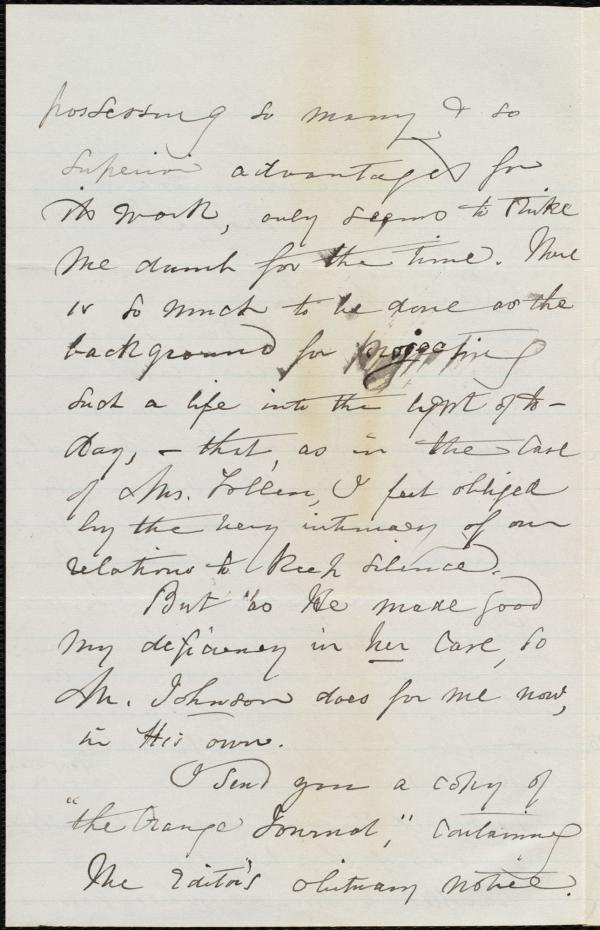 possessing so many & so
superior advantages for
its work, only seems to strike
me dumb for the time. There
is so much to be done as the
background for projecting
such a life into the light of to-
day, - that, as in the case
of Mrs. Follen, I feel obliged
by the very intimacy of our
relations to keep silence.
But as He made good
my deficiency in her case, so
Mr. Johnson does for me now,
in His own.
I send you a copy of
"the Orange Journal," containing
the Editor's obituary notice.